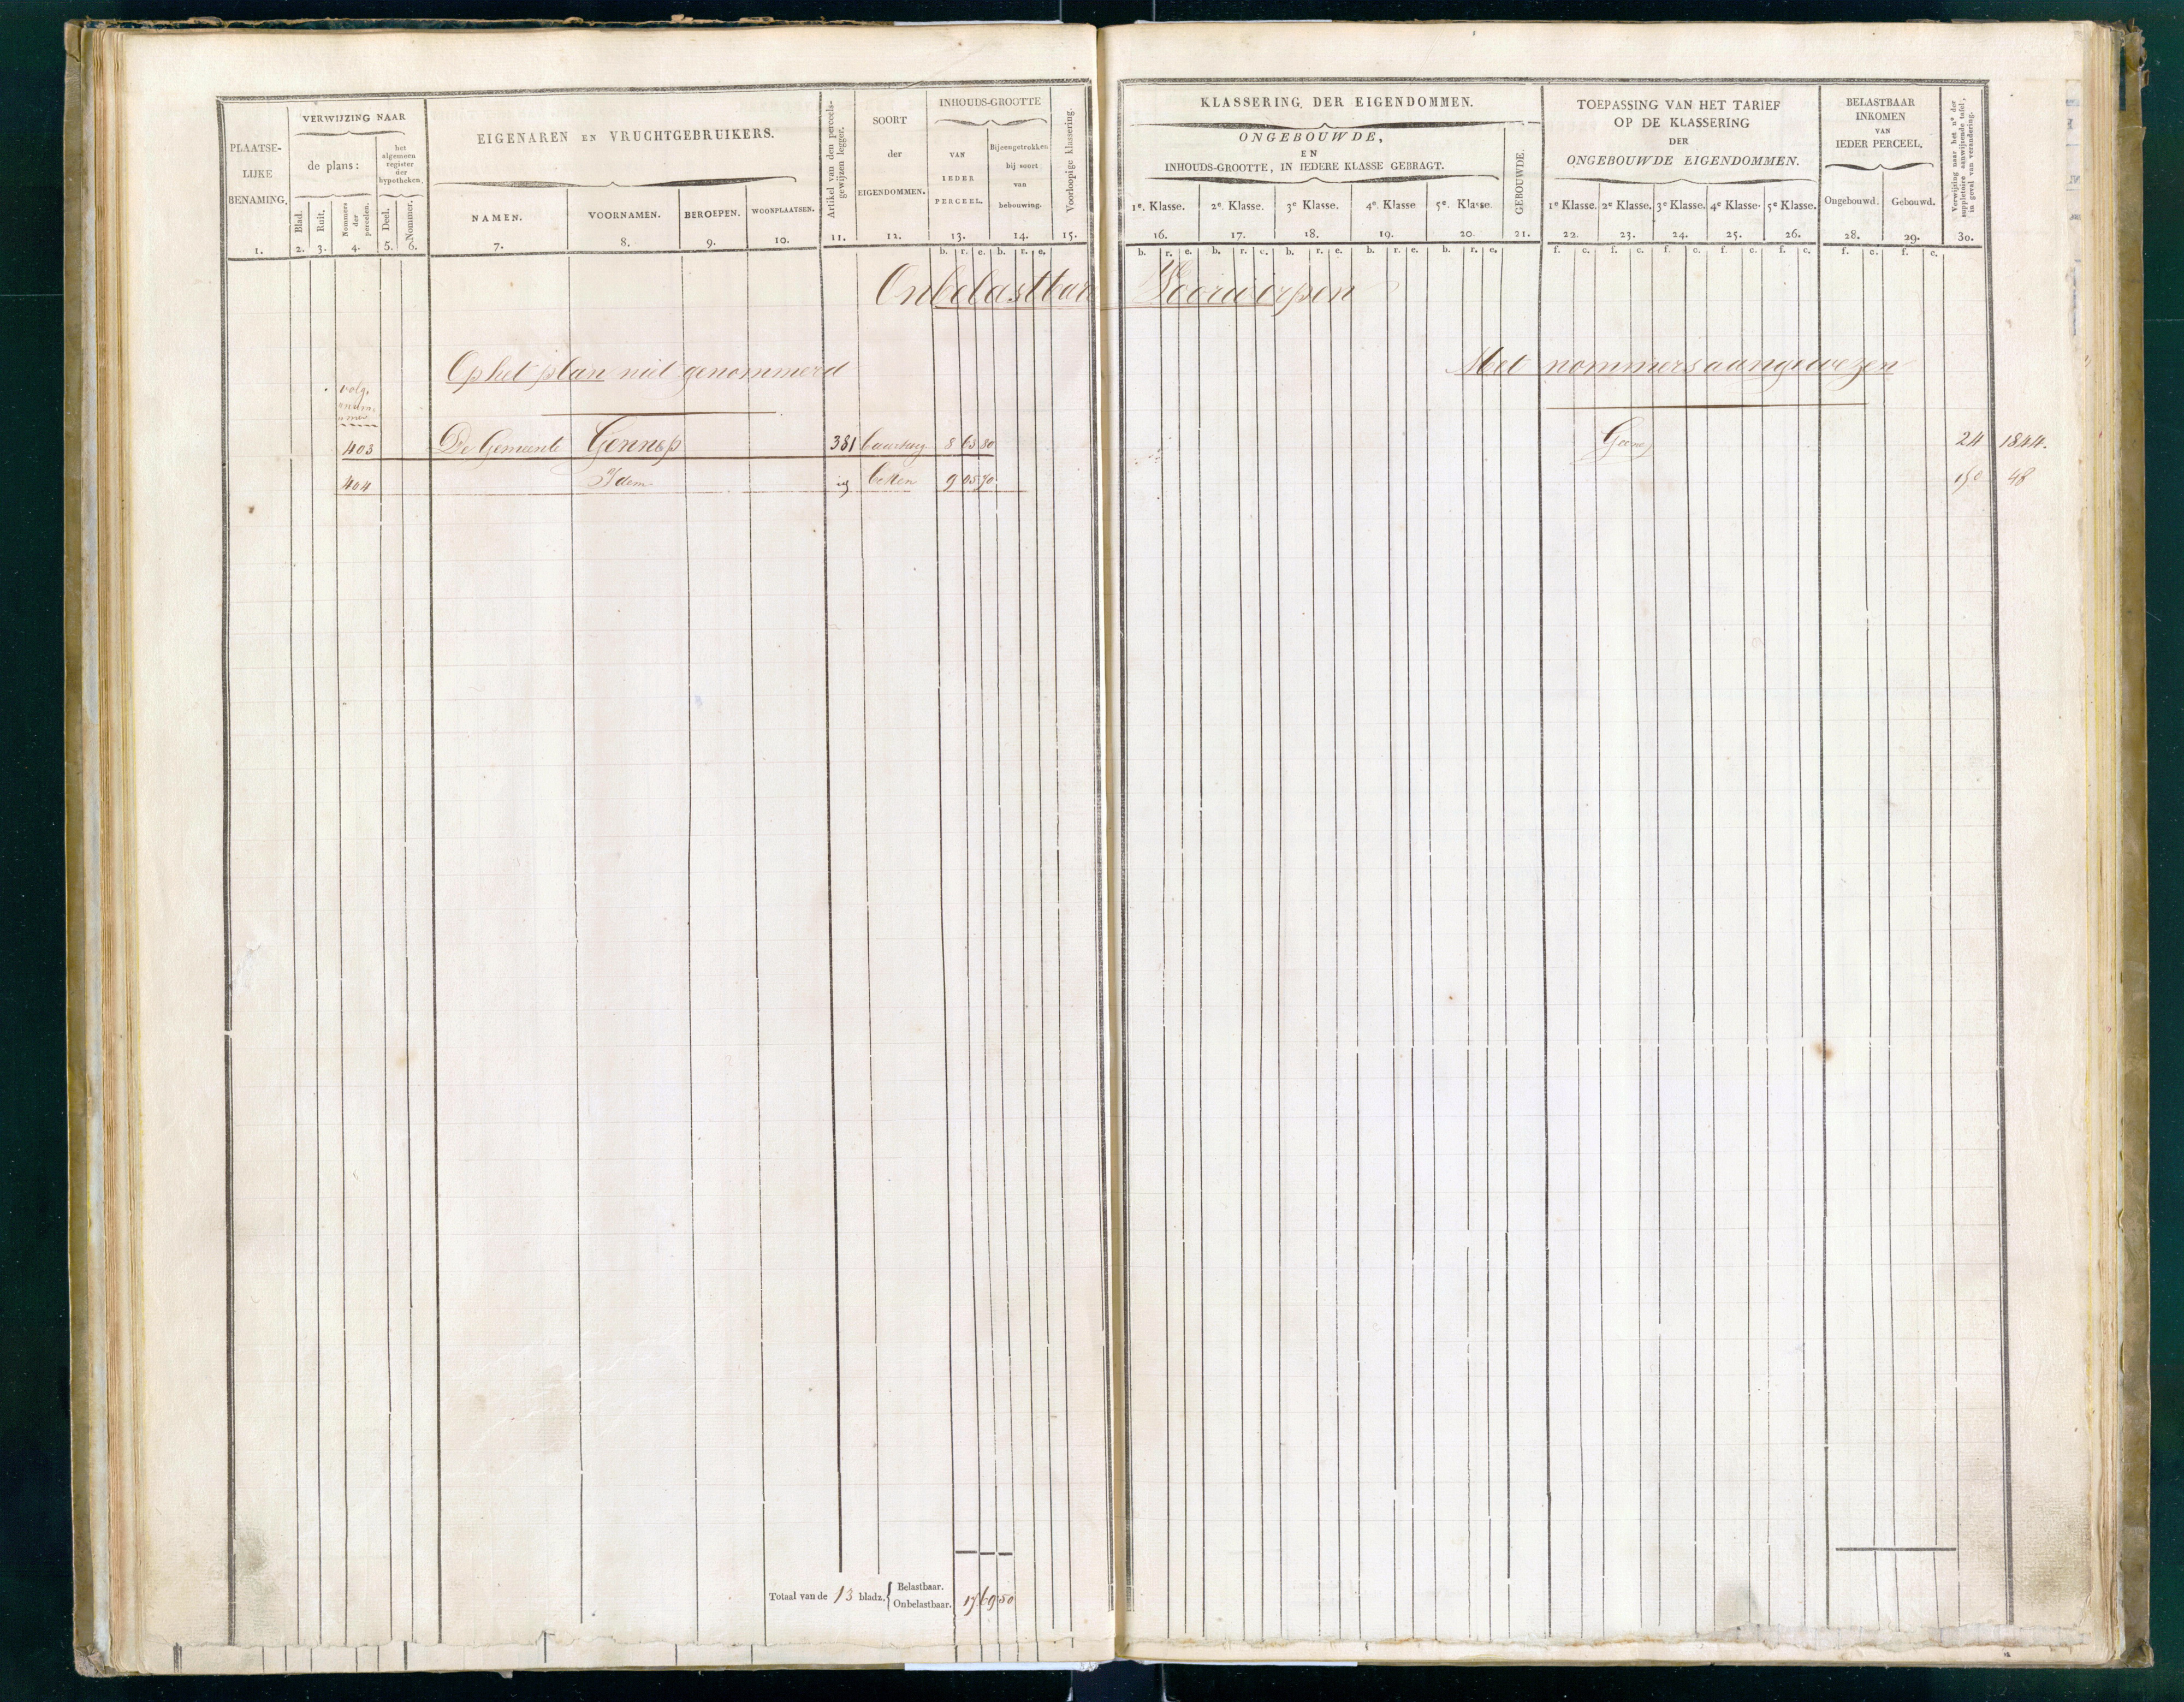 PLAATSE-
LIJKE
BENAMING.
1.
VERWIJZING NAAR
de plans:
het
algemeen
register
der
hypotheken.
Blad.
2.
Ruit.
3.
Nommers
der
perceelen.
4.
Deel.
5.
Nommer.
6.
EIGENAREN EN VRUCHTGEBRUIKERS.
NAMEN.
7.
VOORNAMEN.
8.
BEROEPEN.
9.
WOONPLAATSEN.
10.
Artikel van den perceels-
gewijzen legger.
11.
SOORT
der
EIGENDOMMEN.
12.
INHOUDS-GROOTTE
VAN
IEDER
PERCEEL.
13.
b. r. e.
Bijeengetrokken
bij soort
van
bebouwing.
14.
b. r. e.
Voorloopige klassering.
15.
KLASSERING DER EIGENDOMMEN.
ONGEBOUWDE,
EN
INHOUDS-GROOTTE, IN IEDERE KLASSE GEBRAGT.
1e. Klasse. 2e. Klasse. 3e Klasse. 4e. Klasse 5e. Klasse.
16. 17. 18. 19. 20.
b. r. e. b. r. e. b. r. e. b. r. e. b. r. e.
GEBOUWDE.
21.
TOEPASSING VAN HET TARIEF
OP DE KLASSERING
DER
ONGEBOUWDE EIGENDOMMEN.
1e Klasse. 2e Klasse. 3e Klasse. 4e Klasse. 5e Klasse.
22. 23. 24. 25. 26.
f. c. f. c. f. c. f. c. f. c.
BELASTBAAR
INKOMEN
VAN
IEDER PERCEEL.
Ongebouwd. Gebouwd.
28. 29.
f. c. f. c.
Verwijzing naar het no der
suppletoire aanwijzende tafel,
in geval van verandering.
30.
Onbelastbare Voorwerpen
Op het plan niet genommerd
Met nommers aangewezen
volg.
num.
mer
403 De Gemeente Gennep 381 8 63 80
Geene
24 1844.
404 Idem beken 9 05 70
48
Totaal van de 13 bladz. { Belastbaar.
Onbelastbaar. 17 69 50